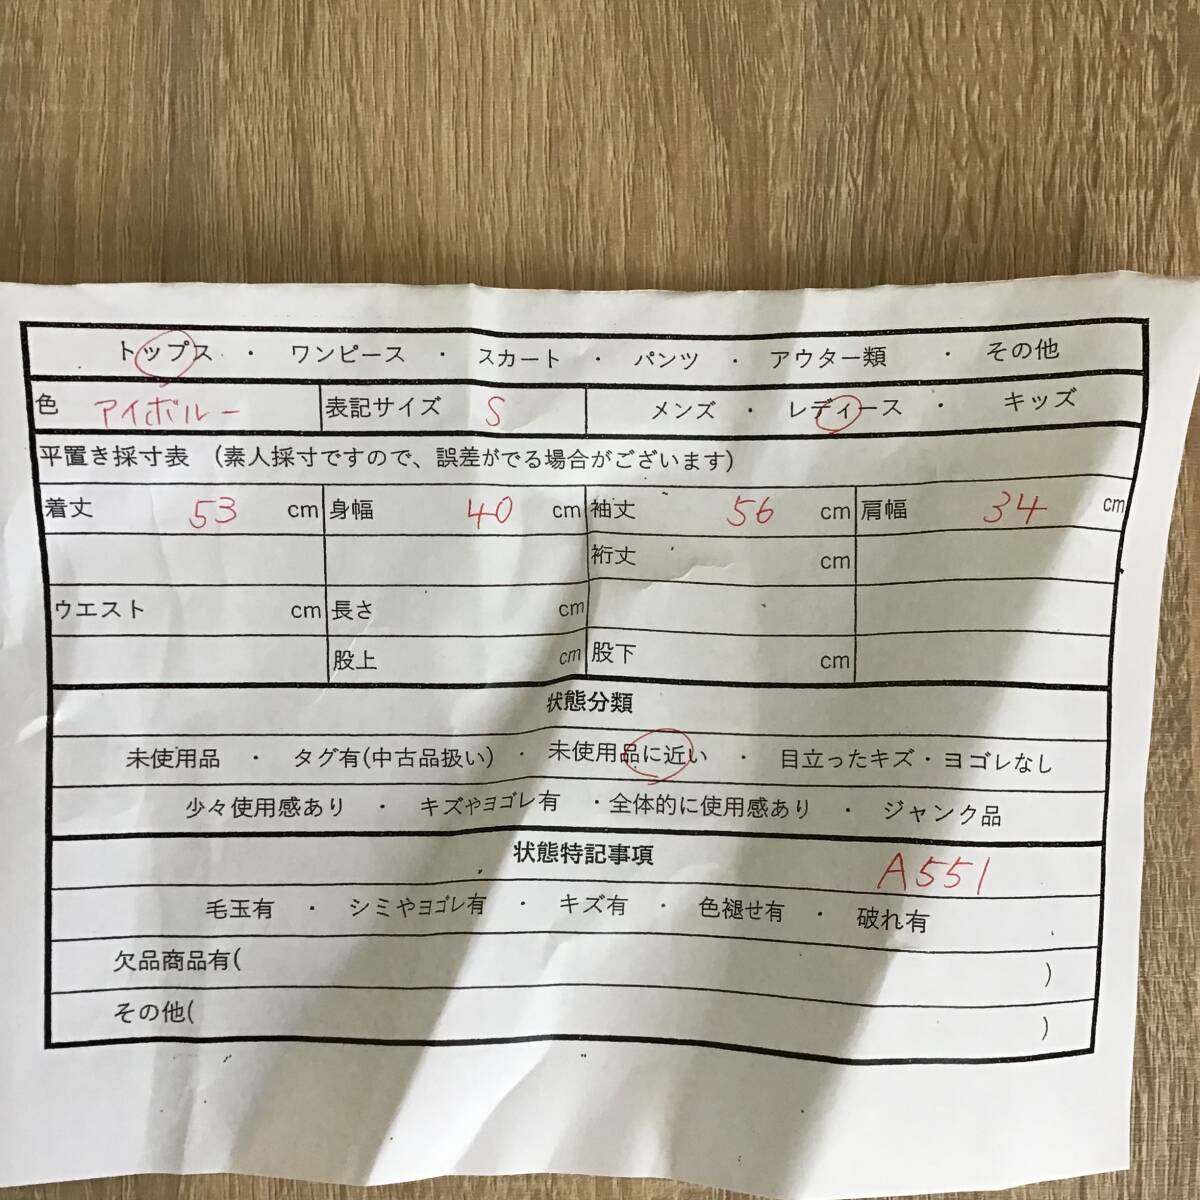 トップス ・ ワンピース ・ スカート ・ パンツ ・ アウター類 ・ その他
色 アイボルー 表記サイズ S メンズ ・ レディース ・ キッズ
平置き採寸表 (素人採寸ですので、誤差がでる場合がございます)
着丈 53 cm 身幅 40 cm 袖丈 56 cm 肩幅 34 cm
裄丈 cm
ウエスト cm 長さ cm
股上 cm 股下 cm
状態分類
未使用品 ・ タグ有(中古品扱い) ・ 未使用品に近い ・ 目立ったキズ・ヨゴレなし
少々使用感あり ・ キズやヨゴレ有 ・全体的に使用感あり ・ ジャンク品
状態特記事項 A551
毛玉有 ・ シミやヨゴレ有 ・ キズ有 ・ 色褪せ有 ・ 破れ有
欠品商品有( )
その他( )